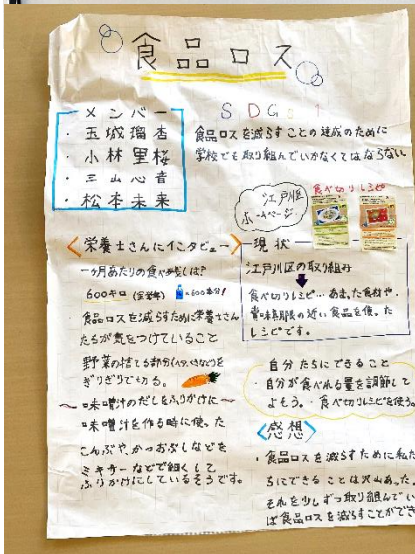 食品ロス
メンバー
・玉城瑠杏
・小林里桜
・三山心音
・松本未来
SDGs
食品ロスを減らすことの達成のために
学校でも取り組んでいかなくてはならない
江戸川区
ホームページ
食べ切りレシピ
<栄養士さんにインタビュー>
一ヶ月あたりの食べ残しは?
600キロ(全学年)
食品ロスを減らすために栄養士さん
たちが気をつけていること
野菜の捨てる部分(ヘタ、など)を
ぎりぎりで切る。
~味噌汁のだしをふりかけに~
味噌汁を作る時に使った
こんぶや、かつおぶしなどを
ミキサーなどで細くして
ふりかけにしているそうです。
現状
江戸川区の取り組み
食べ切りレシピ…あまった食材や、
賞味期限の近い食品を使った
レシピです。
自分たちにできること
・自分が食べれる量を調節して
よそう。・食べ切りレシピを使う。
<感想>
・食品ロスを減らすために私た
ちにできることは沢山あった。
それを少しずつ取り組んでい
ば食品ロスを減らすことができ